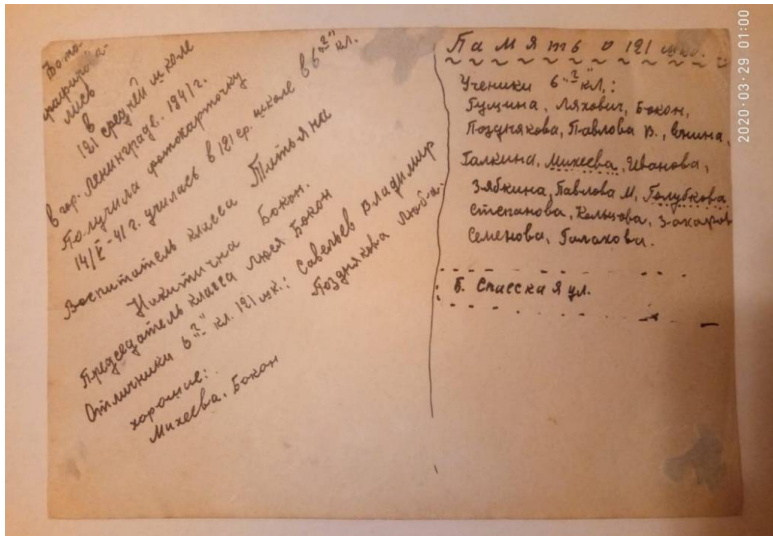 Фотографирова-
лись
в
121 средней школе
в гор. Ленинграде. 1941г.
Получила фотокарточку
14/V-41г. училась в 121 ср. школе в 6 "З" кл.
Воспитатель класса Татьяна
Никитична Бокон.
Председатель класса Люся Бокон
Отличники 6 "З" кл. 121 шк.: Савельев Владимир
Позднякова Люба.
хорошие:
Михеева, Бокон
Память о 121 шк.
Ученики 6 "З" кл.:
Гущина, Ляхович, Бокон,
Позднякова, Павлова В.,
Галкина, Михеева, Иванова,
Зябкина, Павлова М, Голубкова
Степанова, Кольцова, Захаров
Семенова, Галахова.
Б. Спасская ул.
2020-03-29 01:00